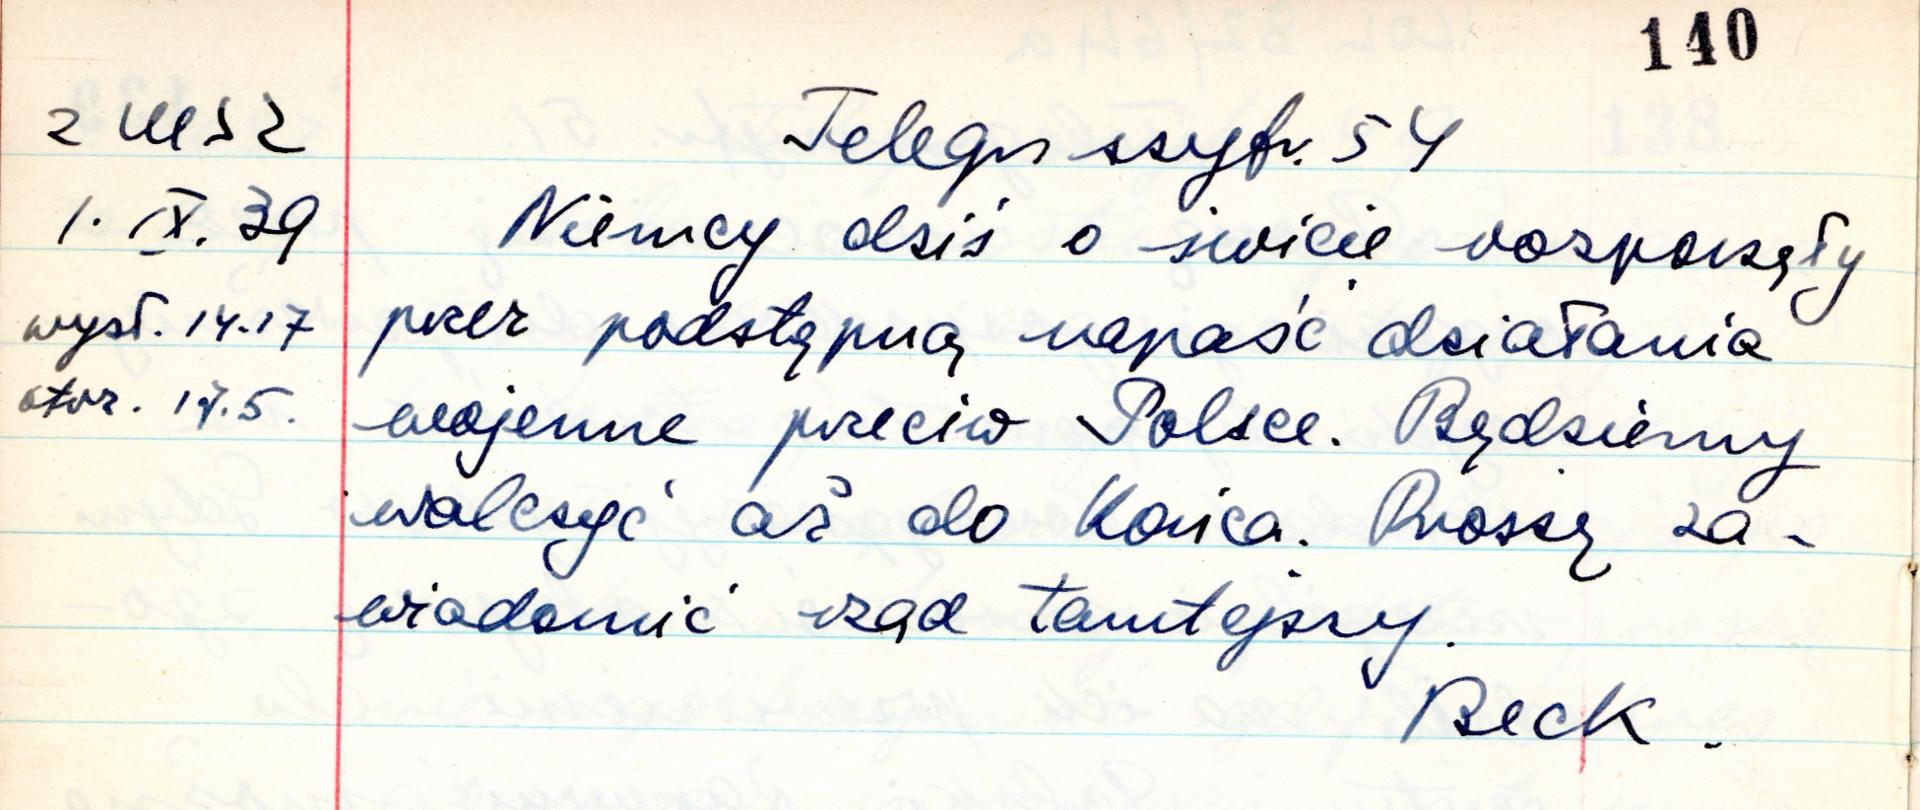 140
z MSZ
Telegr szyfr. 54
1. IX. 39
Niemcy dziś o świcie rozpoczęły
wysł. 14.17
przez podstępną napaść działania
otrz. 17.5.
wojenne przeciw Polsce. Będziemy
walczyć aż do końca. Proszę za-
wiadomić rząd tamtejszy.
Beck.